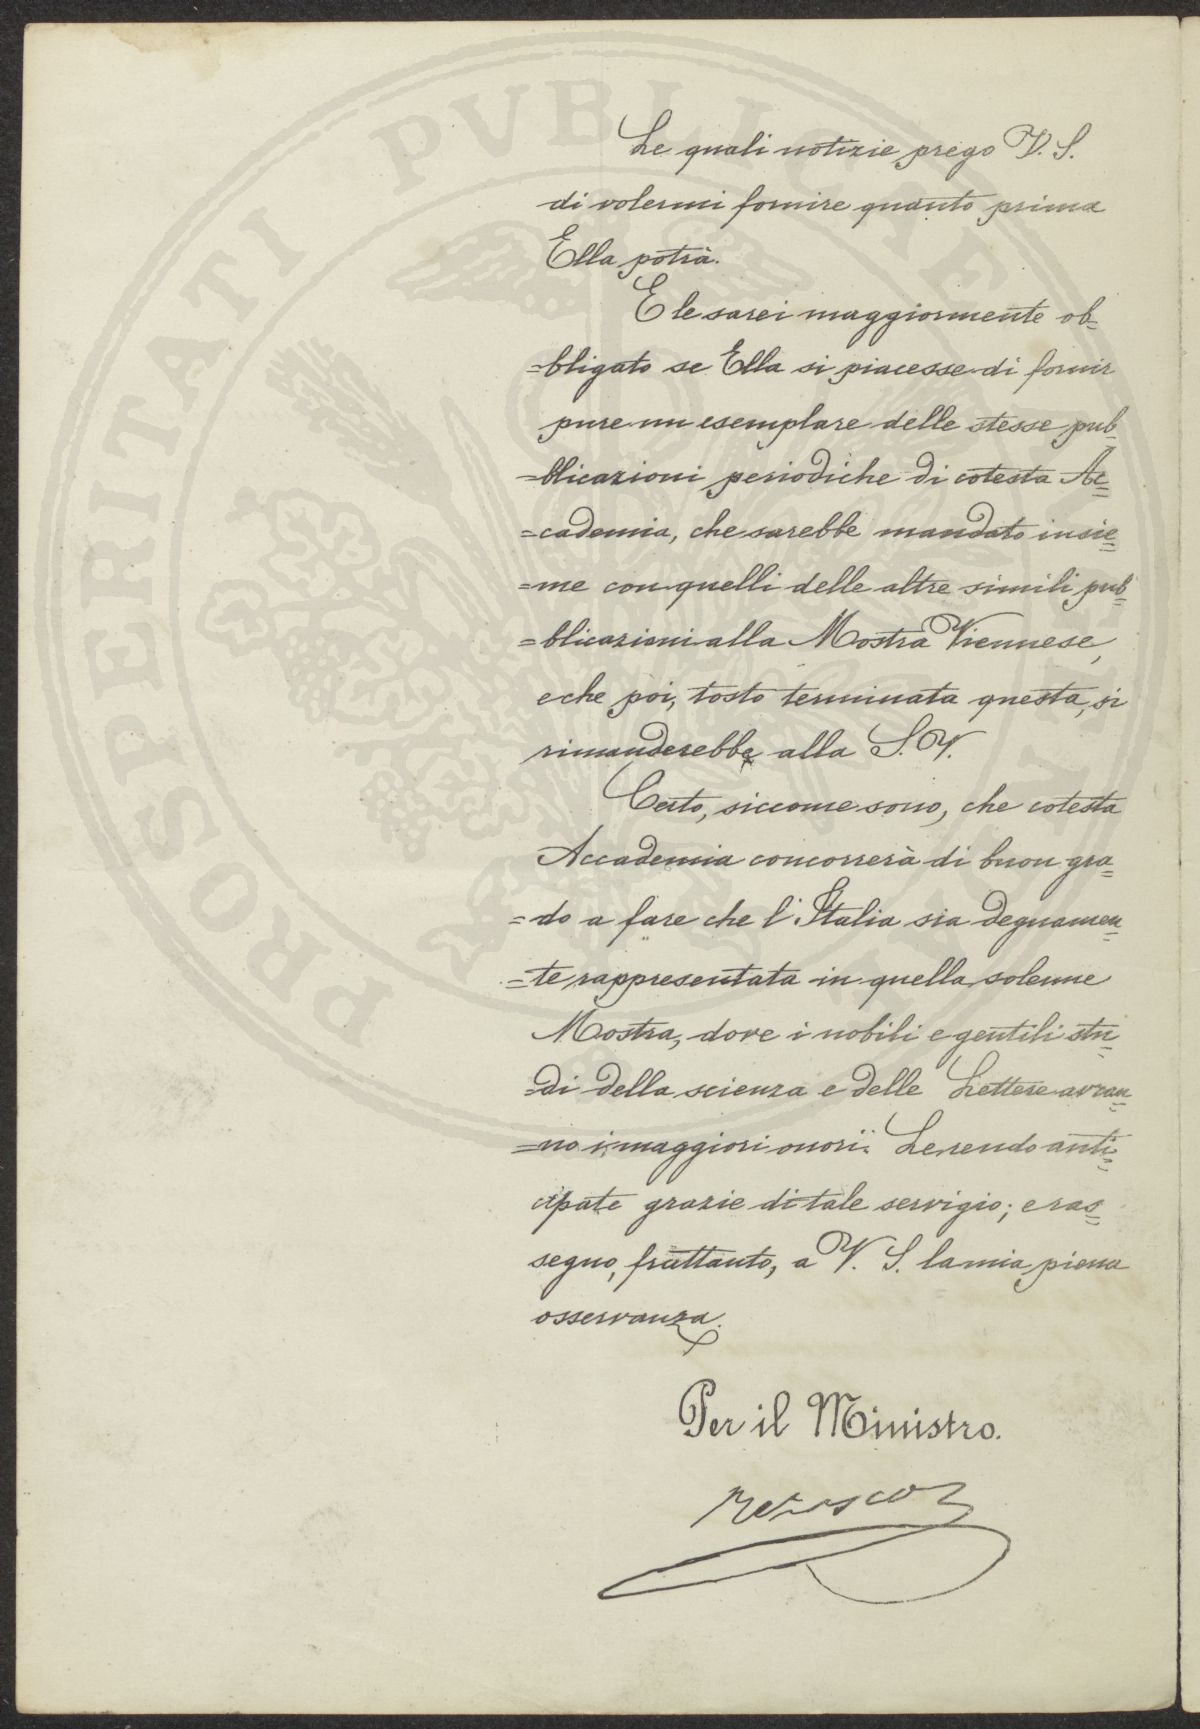 Le quali notizie prego V. S.
di volermi fornire quanto prima
Ella potrà.
E le sarei maggiormente ob=
=bligato se Ella si piacesse di fornir
pure un esemplare delle stesse pub=
=blicazioni periodiche di cotesta Ac=
=cademia, che sarebbe mandato insie=
=me con quelli delle altre simili pub=
=blicazioni alla Mostra Viennese,
e che poi, tosto terminata questa, si
rimanderebbe alla S. V.
Certo, siccome sono, che cotesta
Accademia concorrerà di buon gra=
=do a fare che l'Italia sia degnamen=
=te rappresentata in quella solenne
Mostra, dove i nobili e gentili stu=
=di della scienza e delle Lettere avran=
=no i maggiori onori. Le rendo anti=
cipate grazie di tale servigio; e ras=
segno, frattanto, a V. S. la mia piena
osservanza.
Per il Ministro.
PROSPERITATI PVBLICAE